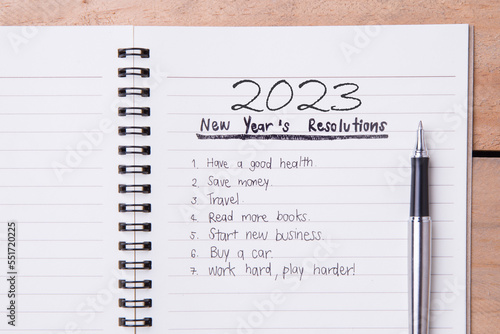 2023
New Year's Resolutions
1. Have a good health.
2. Save money.
3. Travel.
4. Read more books.
5. Start new business.
6. Buy a car.
7. Work hard, play harder!
Adobe Stock | #551720225